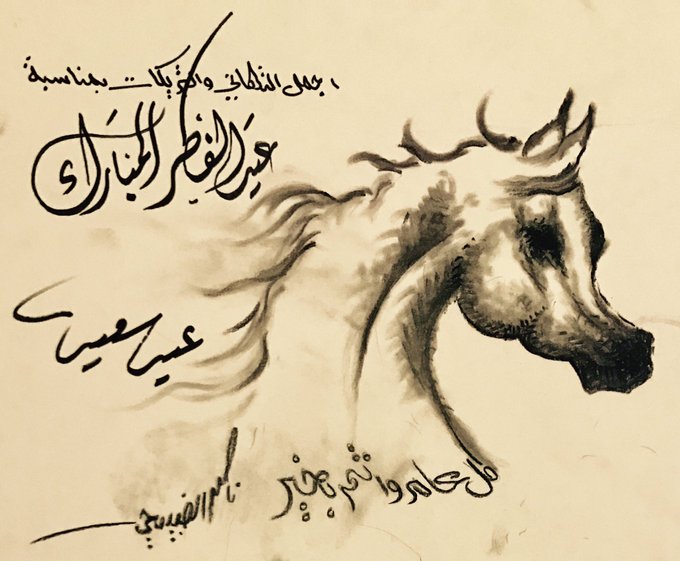 اجمل التهاني والتبريكات بمناسبة
عيد الفطر المبارك
عيد سعيد
كل عام وانتم بخير